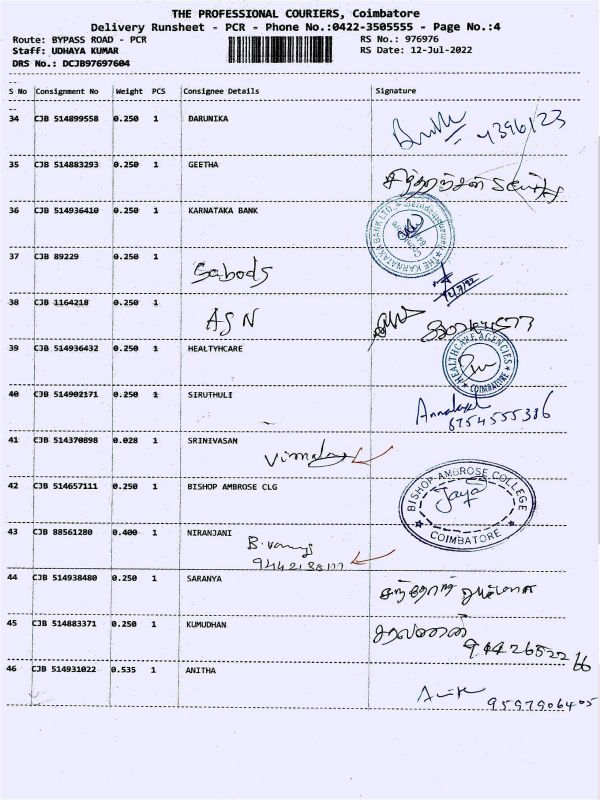 THE PROFESSIONAL COURIERS, Coimbatore
Delivery Runsheet - PCR - Phone No.:0422-3505555 - Page No.:4
Route: BYPASS ROAD - PCR RS No.: 976976
Staff: UDHAYA KUMAR RS Date: 12-Jul-2022
DRS No.: DCJB97697604
S No Consignment No Weight PCS Consignee Details Signature
34 CJB 514899558 0.250 1 DARUNIKA
35 CJB 514883293 0.250 1 GEETHA
36 CJB 514936410 0.250 1 KARNATAKA BANK
THE KARNATAKA BANK LTD.
37 CJB 89229 0.250 1
38 CJB 1164218 0.250 1
ASN
39 CJB 514936432 0.250 1 HEALTYHCARE
HEALTHCARE AGENCIES
COIMBATORE
40 CJB 514902171 0.250 1 SIRUTHULI
41 CJB 514370898 0.028 1 SRINIVASAN
42 CJB 514657111 0.250 1 BISHOP AMBROSE CLG
BISHOP AMBROSE COLLEGE
Jaya
COIMBATORE
43 CJB 88561280 0.400 1 NIRANJANI
44 CJB 514938480 0.250 1 SARANYA
45 CJB 514883371 0.250 1 KUMUDHAN
46 CJB 514931022 0.535 1 ANITHA